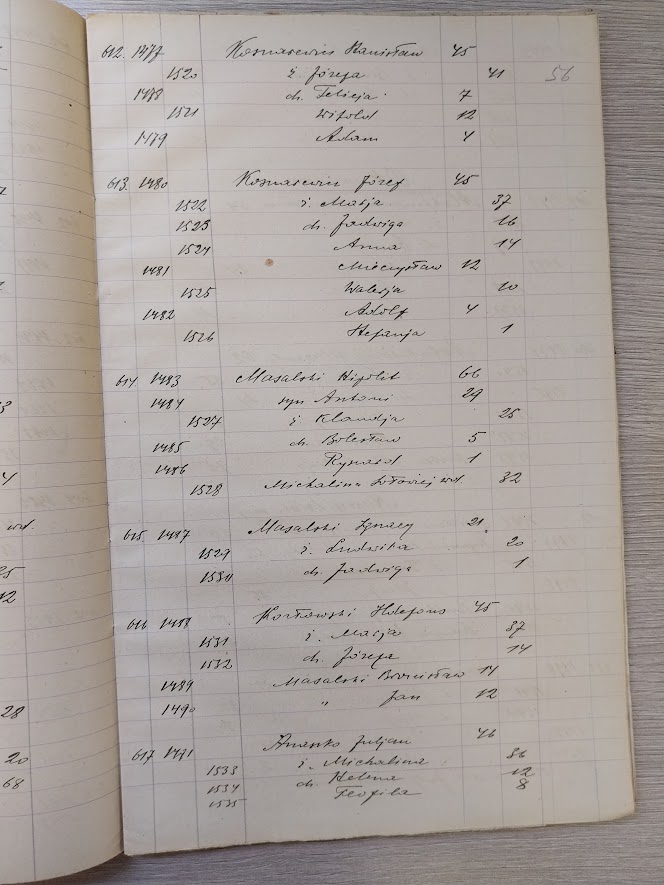 612. 1477 Kosnarewicz Stanisław 45
1520 ż. Józefa 41 56
1478 dz. Felicja 7
1521 Witold 12
1479 Adam 4
613. 1480 Kosnarewicz Józef 45
1522 ż. Marja 37
1523 dz. Jadwiga 16
1524 Anna 14
1481 Mieczysław 12
1525 Walerja 10
1482 Adolf 4
1526 Stefanja 1
614 1483 Masalski Hipolit 66
1484 syn Antoni 29
1527 ż Klaudja 25
1485 dz. Bolesław 5
1486 Ryszard 1
1528 Michalina wd. 32
615. 1487 Masalski Ignacy 21
1529 ż. Ludwika 20
1530 dz. Jadwiga 1
616 1488 Kozłowski Ildefons 45
1531 ż. Marja 37
1532 dz. Józefa 14
1489 Masalski Bronisław 14
1490 " Jan 12
617 1491 Juljan 46
1533 ż. Michalina 36
1534 dz. Helena 12
1535 Teofila 8
wd.
25
12
28
20
68